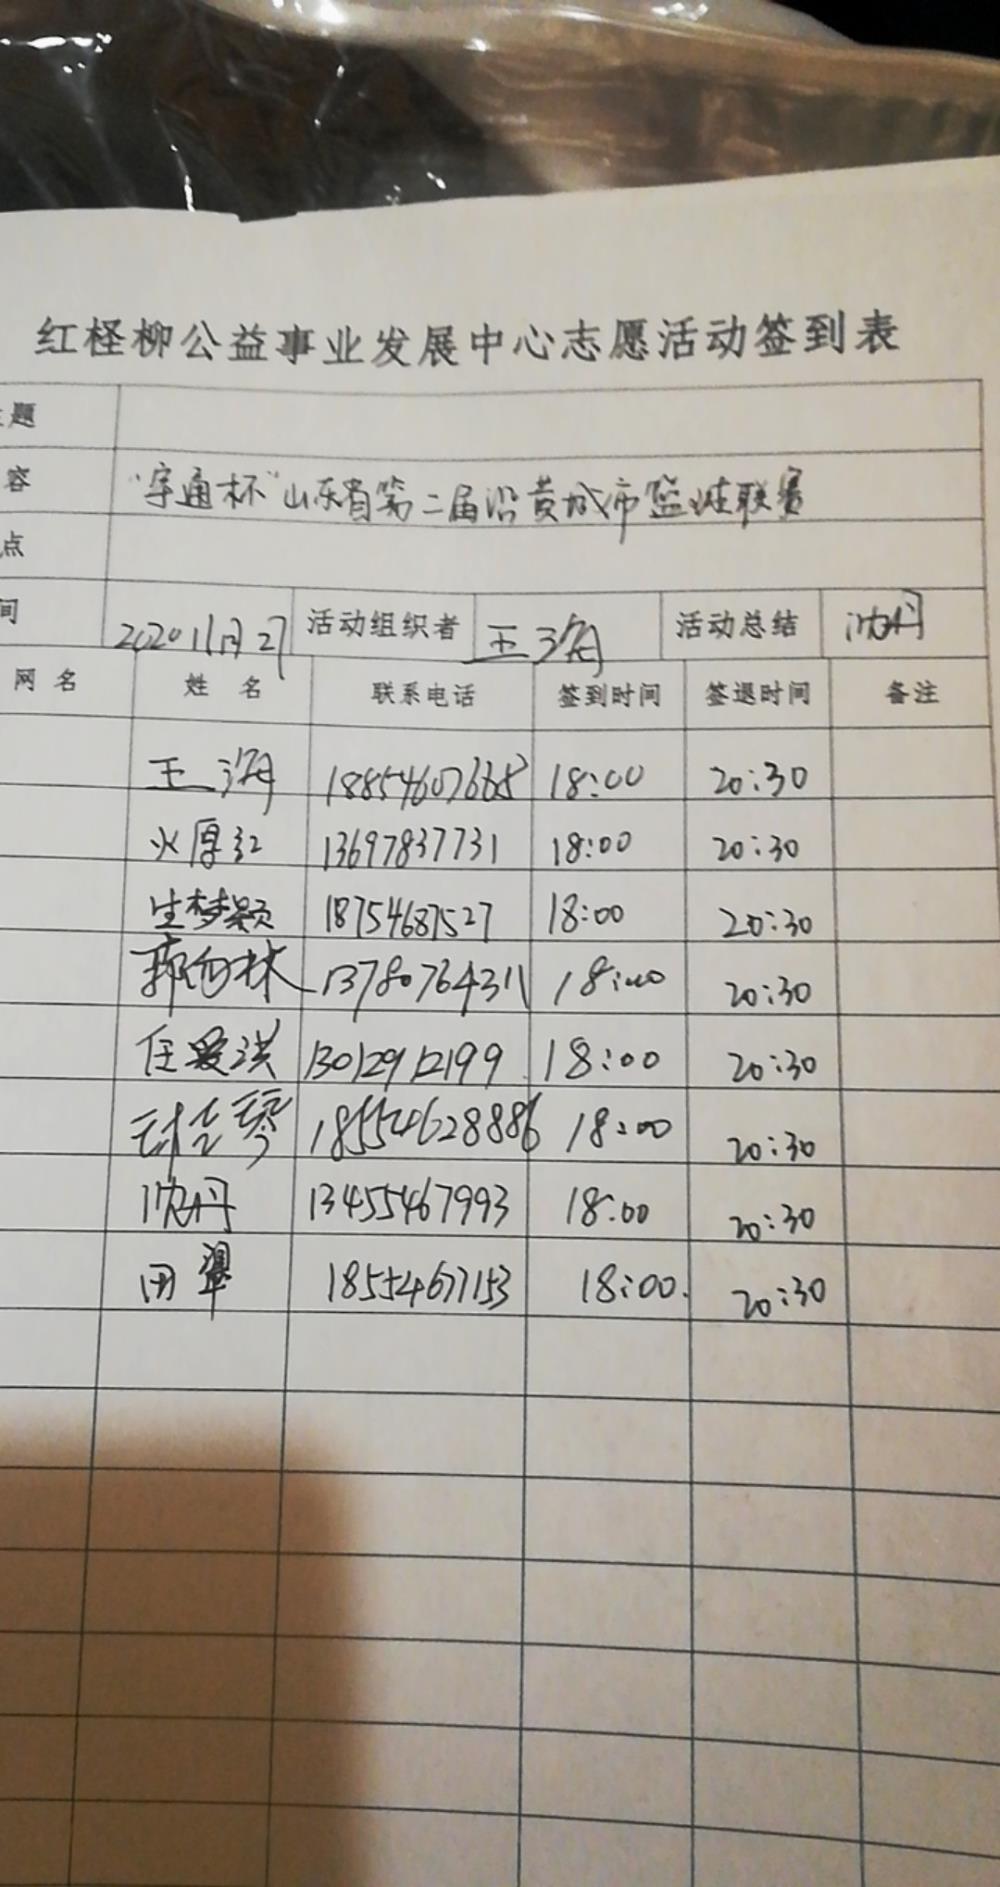 红柽柳公益事业发展中心志愿活动签到表
题
容 "宇通杯"山东省第二届沿黄城市篮球联赛
点
间 2020 11月27 活动组织者 王海 活动总结 沈丹
网名 姓名 联系电话 签到时间 签退时间 备注
王海 18854607668 18:00 20:30
火厚红 13697837731 18:00 20:30
生梦颖 18754687527 18:00 20:30
郭向林 13780764311 18:00 20:30
任爱洪 13012912199 18:00 20:30
18554628886 18:00 20:30
沈丹 13455467993 18:00 20:30
田翠 18554677153 18:00. 20:30